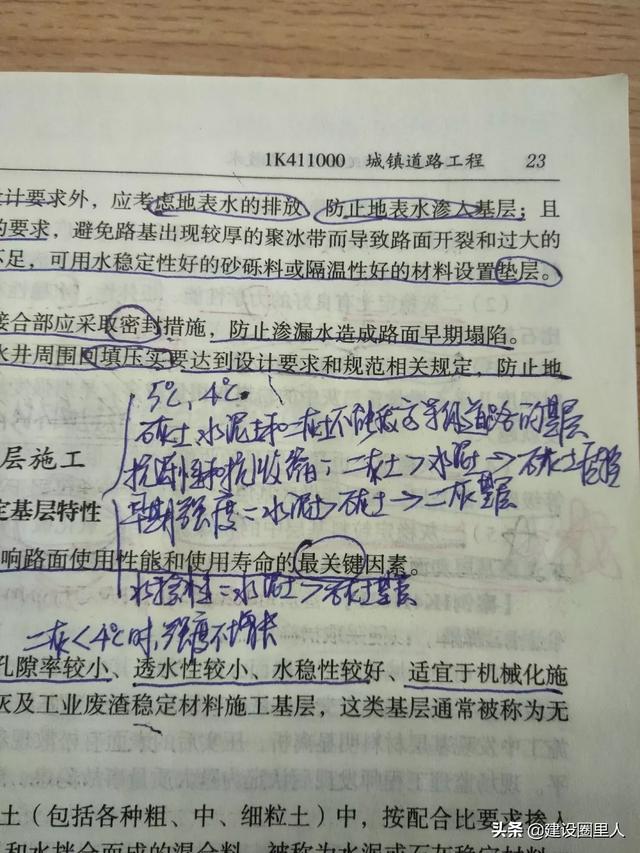 1K411000 城镇道路工程 23
计要求外，应考虑地表水的排放 防止地表水渗入基层；且
的要求，避免路基出现较厚的聚冰带而导致路面开裂和过大的
不足，可用水稳定性好的砂砾料或隔温性好的材料设置垫层。
接合部应采取密封措施，防止渗漏水造成路面早期塌陷。
水井周围回填压实要达到设计要求和规范相关规定，防止地
5℃，4℃.
石灰土 水泥土和二灰土不能做高等级道路的基层
抗
二灰土>水泥土>石灰土
层施工
定基层特性
早期强度：水泥土>石灰土>二灰
响路面使用性能和使用寿命的最关键因素。
水稳定性：水泥土>石灰土
二灰<4℃时，强度不增长
孔隙率较小、透水性较小、水稳性较好、适宜于机械化施
灰及工业废渣稳定材料施工基层，这类基层通常被称为无
土（包括各种粗、中、细粒土）中，按配合比要求掺入
和水拌合而成的混合料，被称为水泥或石灰稳定材料
头条 @建设圈里人